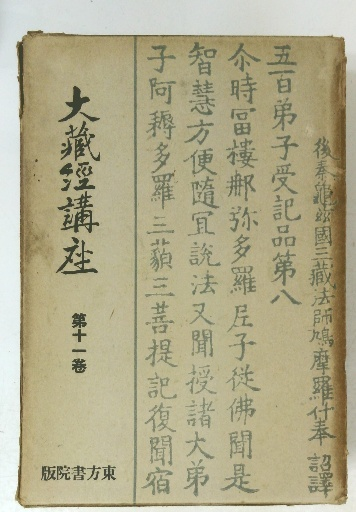 後秦龜茲國三藏法師鳩摩羅什奉 詔譯
五百弟子受記品第八
尒時富樓那弥多羅尼子從佛聞是
智慧方便隨冝說法又聞授諸大弟
子阿耨多羅三藐三菩提記復聞宿
大藏經講座
第十一卷
東方書院版